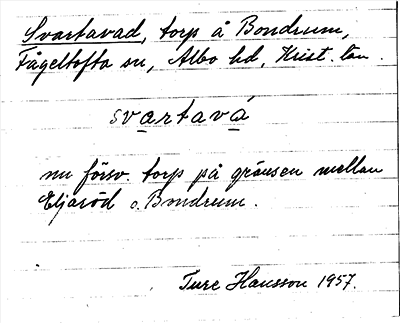 Svartavad, torp å Bondrum,
Fågeltofta sn, Albo hd, Krist. län.
svartavá
nu försv. torp på gränsen mellan
Eljaröd o. Bondrum.
Ture Hansson 1957.